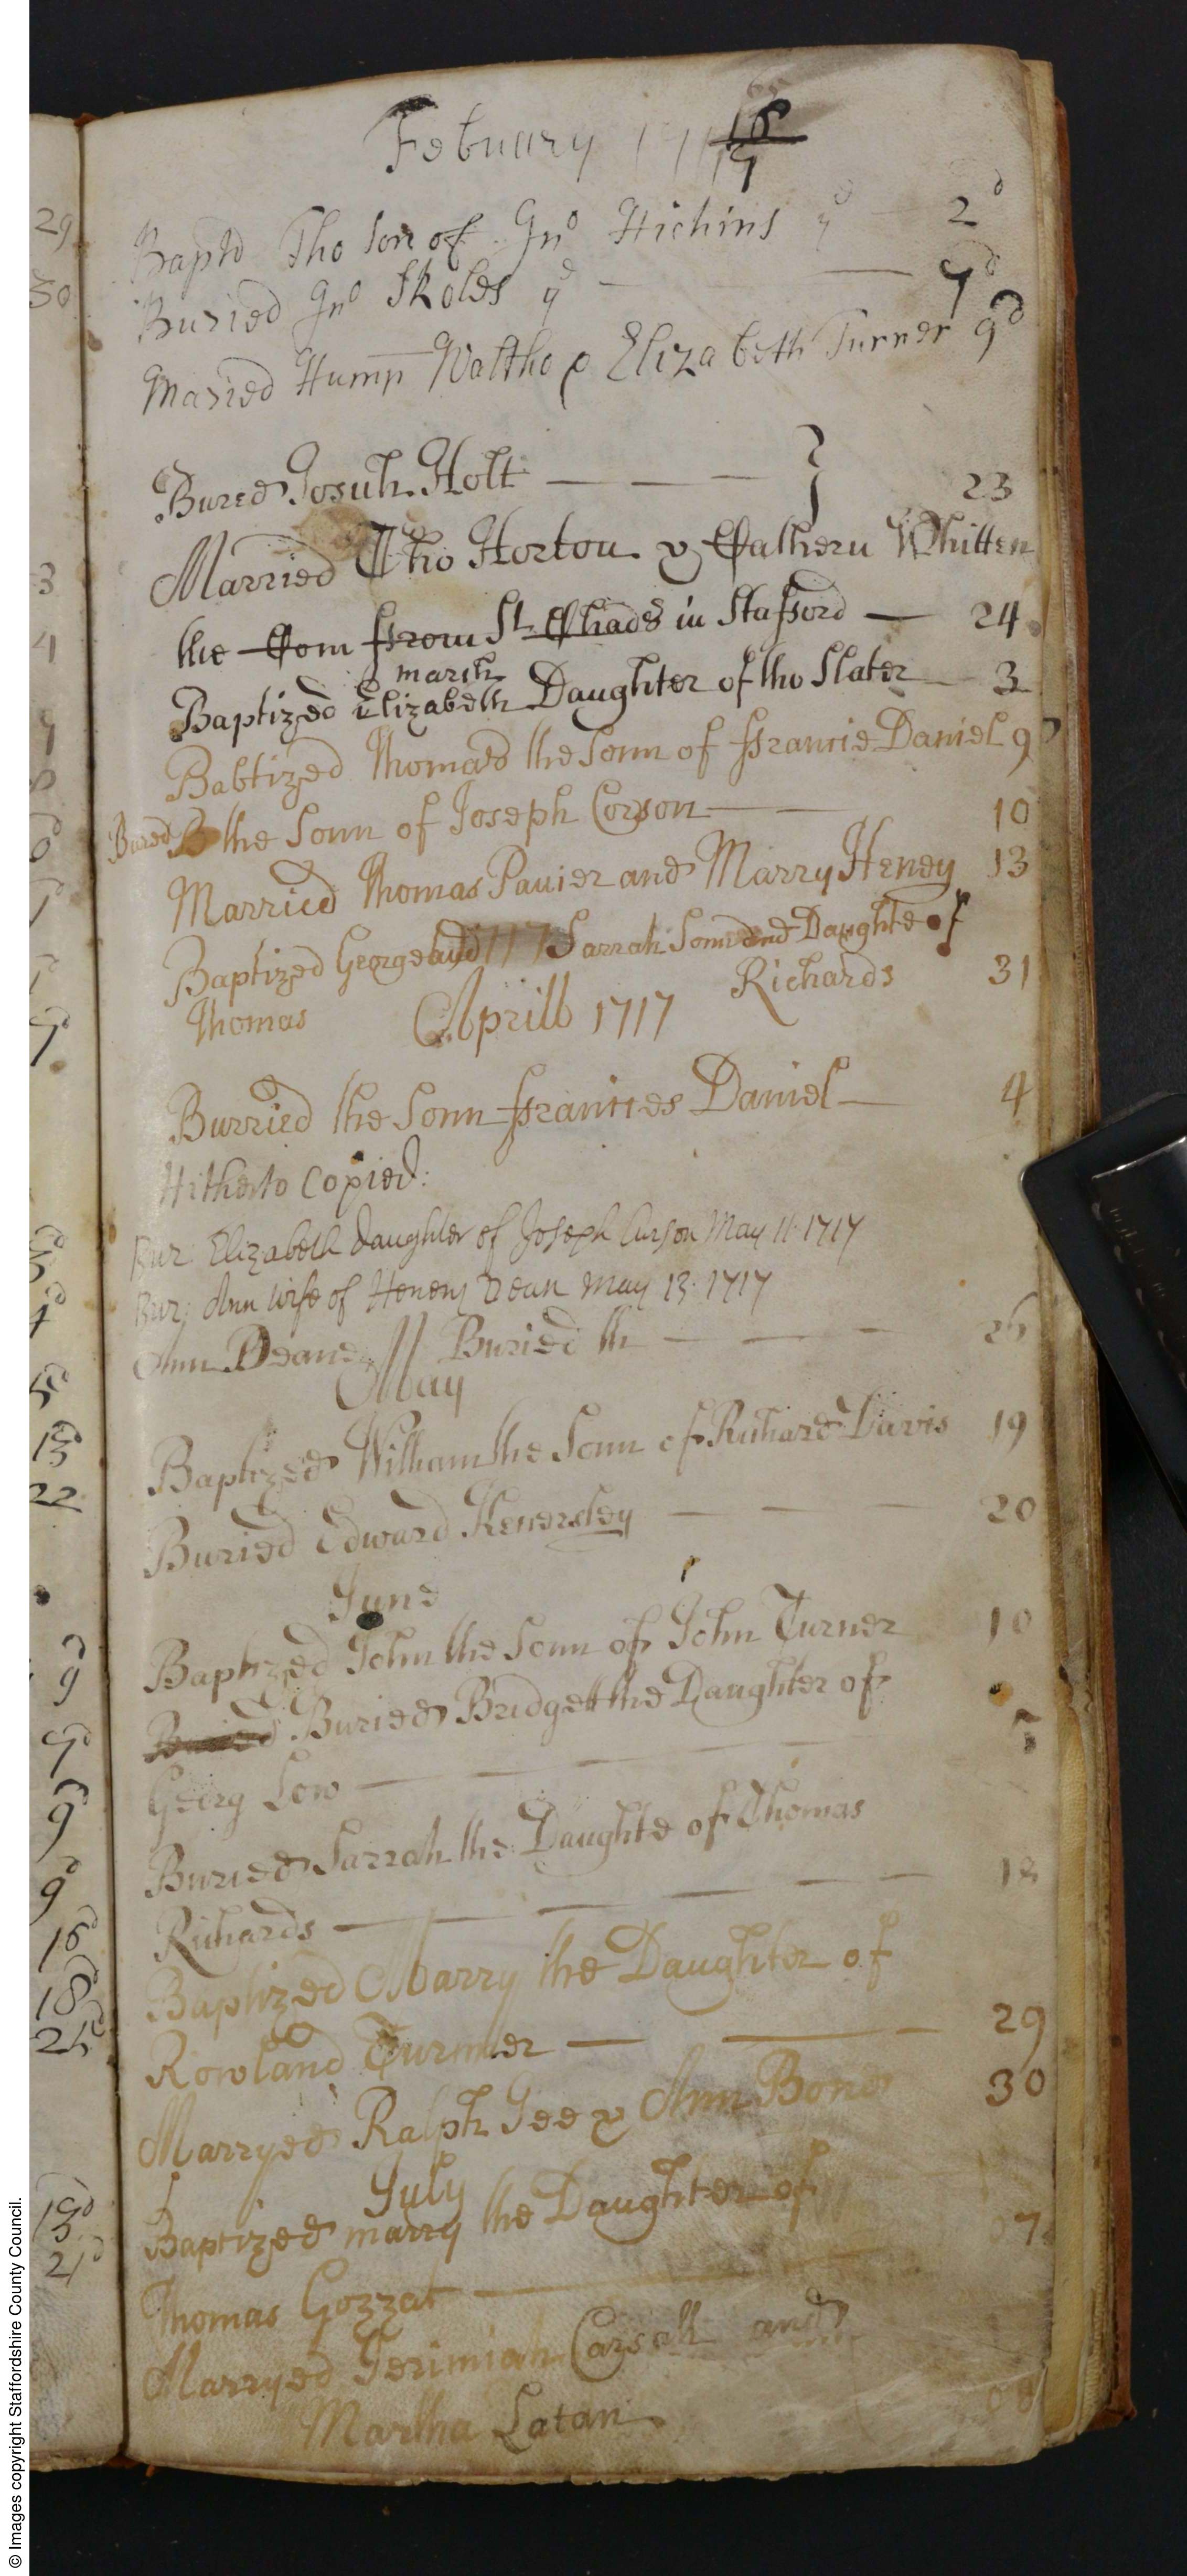 Febuary 171 16/17
Baptd Tho son of Jno Hichins yd 2d
Buried Jno Skoles yd 7d
Maried Hump Waltho & Elizabeth Turner 9d
Bured Josuh Holt 23
Married Tho Horton & Cathern Whitten
the Com from St Chads in Stafford 24
march
Baptized Elizabeth Daughter of tho Slater 3
Babtized Thomas the Sonn of ffrancis Daniel 9
Bured the Sonn of Joseph Corson 10
Married Thomas Pauier and Marry Heney 13
Baptized George and Sarrah Sonn and Daughte of
Thomas Richards 31
Aprill 1717
Burried the Sonn ffrancies Daniel 4
Hitherto Copied:
Bur: Elizabeth Daughter of Joseph Curson May 11. 1717
Bur: Ann wife of Henery Dean May 13. 1717
Ann Deane Buried th 26
May
Baptized William the Sonn of Richard Davis 19
Buried Edward Kenersley 20
June
Baptized John the Sonn of John Turner 10
Buried Buried Bridget the Daughter of
Georg Low
Buried Sarrah the Daughte of Thomas
Richards 18
Baptized Marry the Daughter of
Rowland Turnner 29
Marryed Ralph Gee & Ann Bond 30
July
Baptized marry the Daughter of
Thomas Gozzat 07
Marryed Jerimiah and
Martha Latan 08
29
30
3
4
13
22
9
9
9
16
18
25
19
21
© Images copyright Staffordshire County Council.